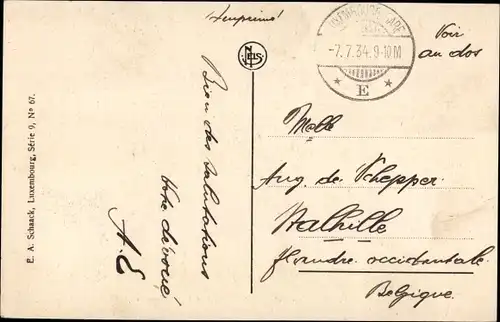 Imprimé
LUXEMBOURG-GARE
-7.7.34.9-10M
E
Voir
au dos
NELS
Bien des salutations
Votre dévoué
A.E
Melle
Aug. de Schepper
Stalhille
flandre occidentale
Belgique.
E. A. Schaack, Luxembourg, Série 9, No 67.